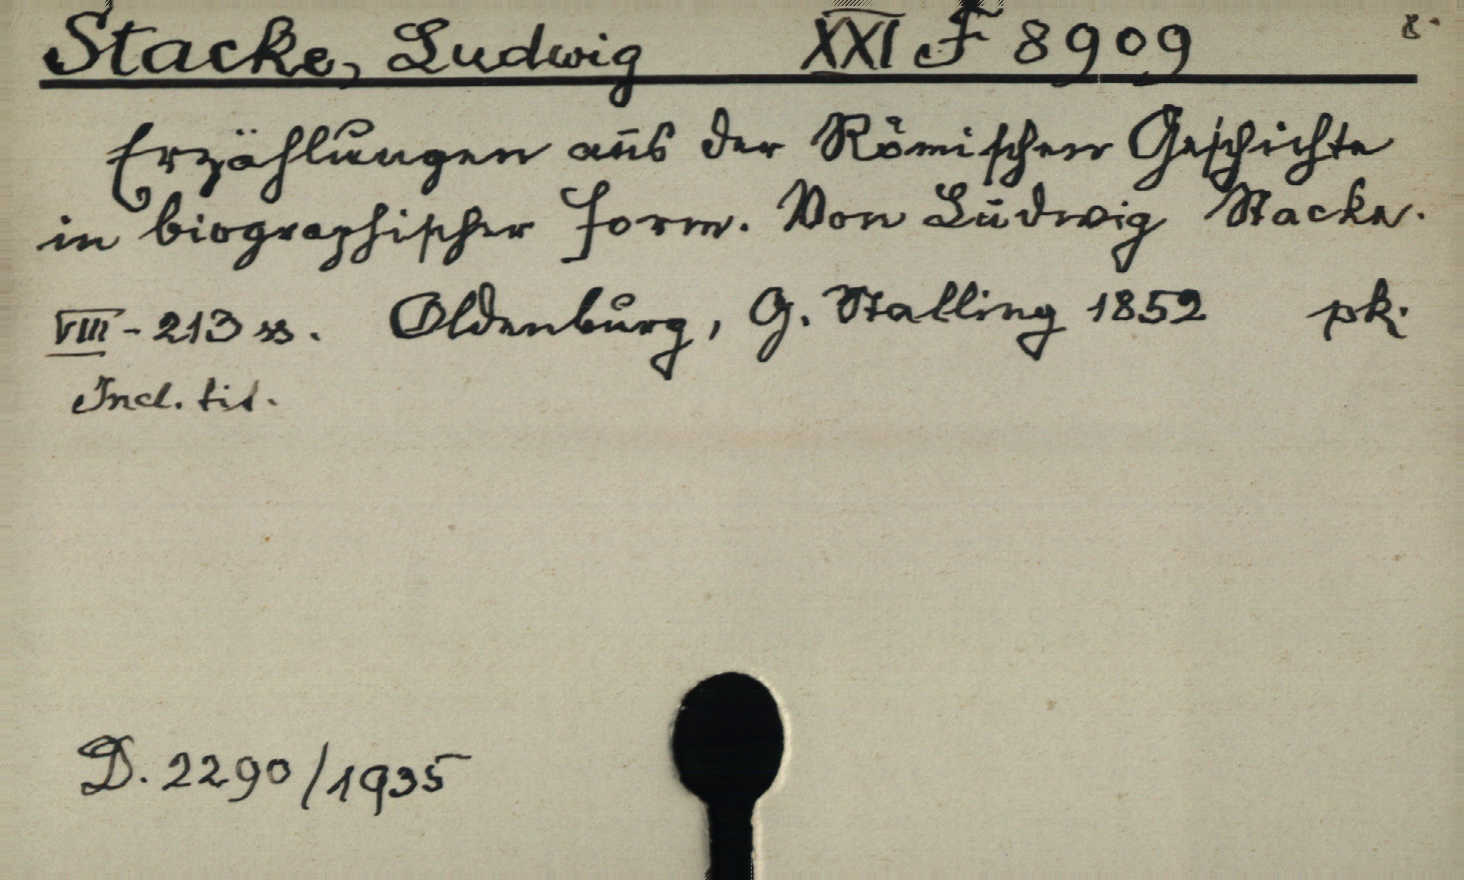 Stacke, Ludwig XXI F 8909 8.
Erzählungen aus der Römischen Geschichte
in biographischer Form. Von Ludwig Stacke.
VIII - 213 ss. Oldenburg, G. Stalling 1852 pk.
Incl. tit.
D. 2290/1935